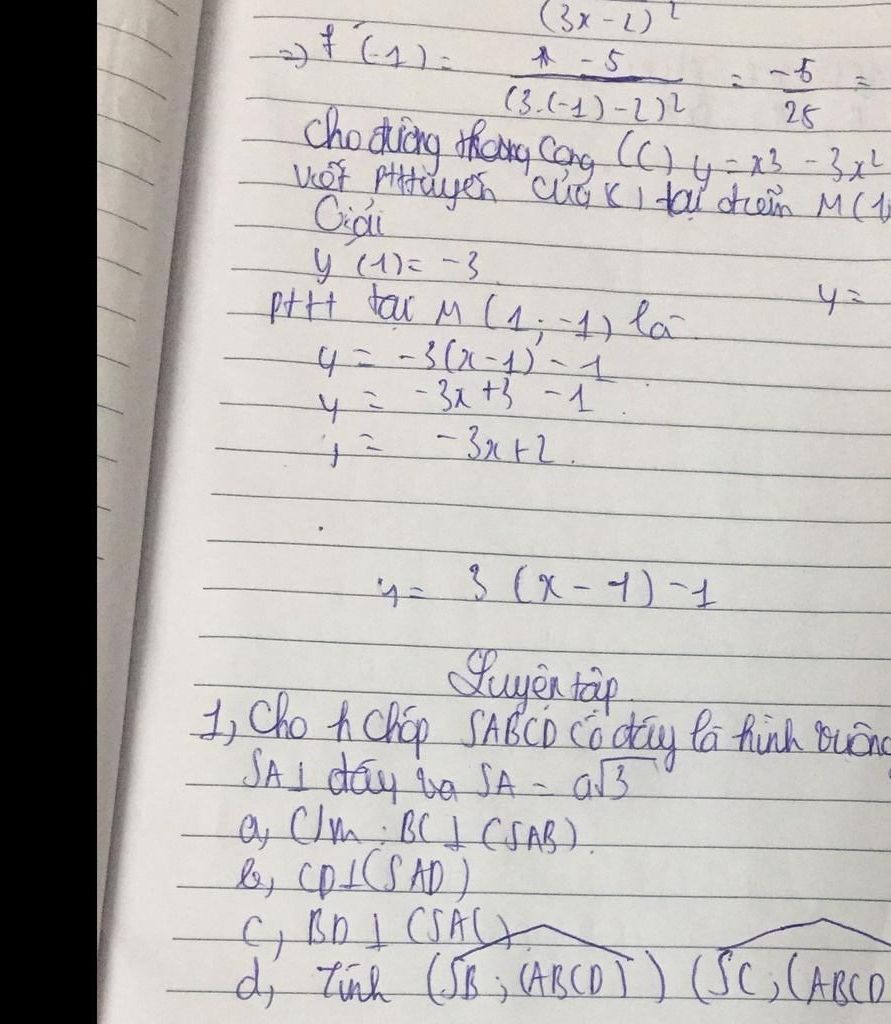 (3x-2)²
=> f'(-1) = -5 / (3.(-1)-2)² = -5/25 =
Cho đường cong (C) y = x³ - 3x²
viết PTTTuyến của (C) tại điểm M(1
Giải
y'(1) = -3
y =
PTTT tại M(1; -1) là
y = -3(x-1) - 1
y = -3x+3 - 1
y = -3x+2.
y = 3(x-1)-1
Luyện tập
1, Cho h chóp SABCD có đáy là hình vuông
SA⊥ đáy và SA = a√3
a, C/m : BC ⊥ (SAB).
b, CD⊥(SAD)
c, BD ⊥ (SAC)
d, Tính (SB; (ABCD)) (SC; (ABCD